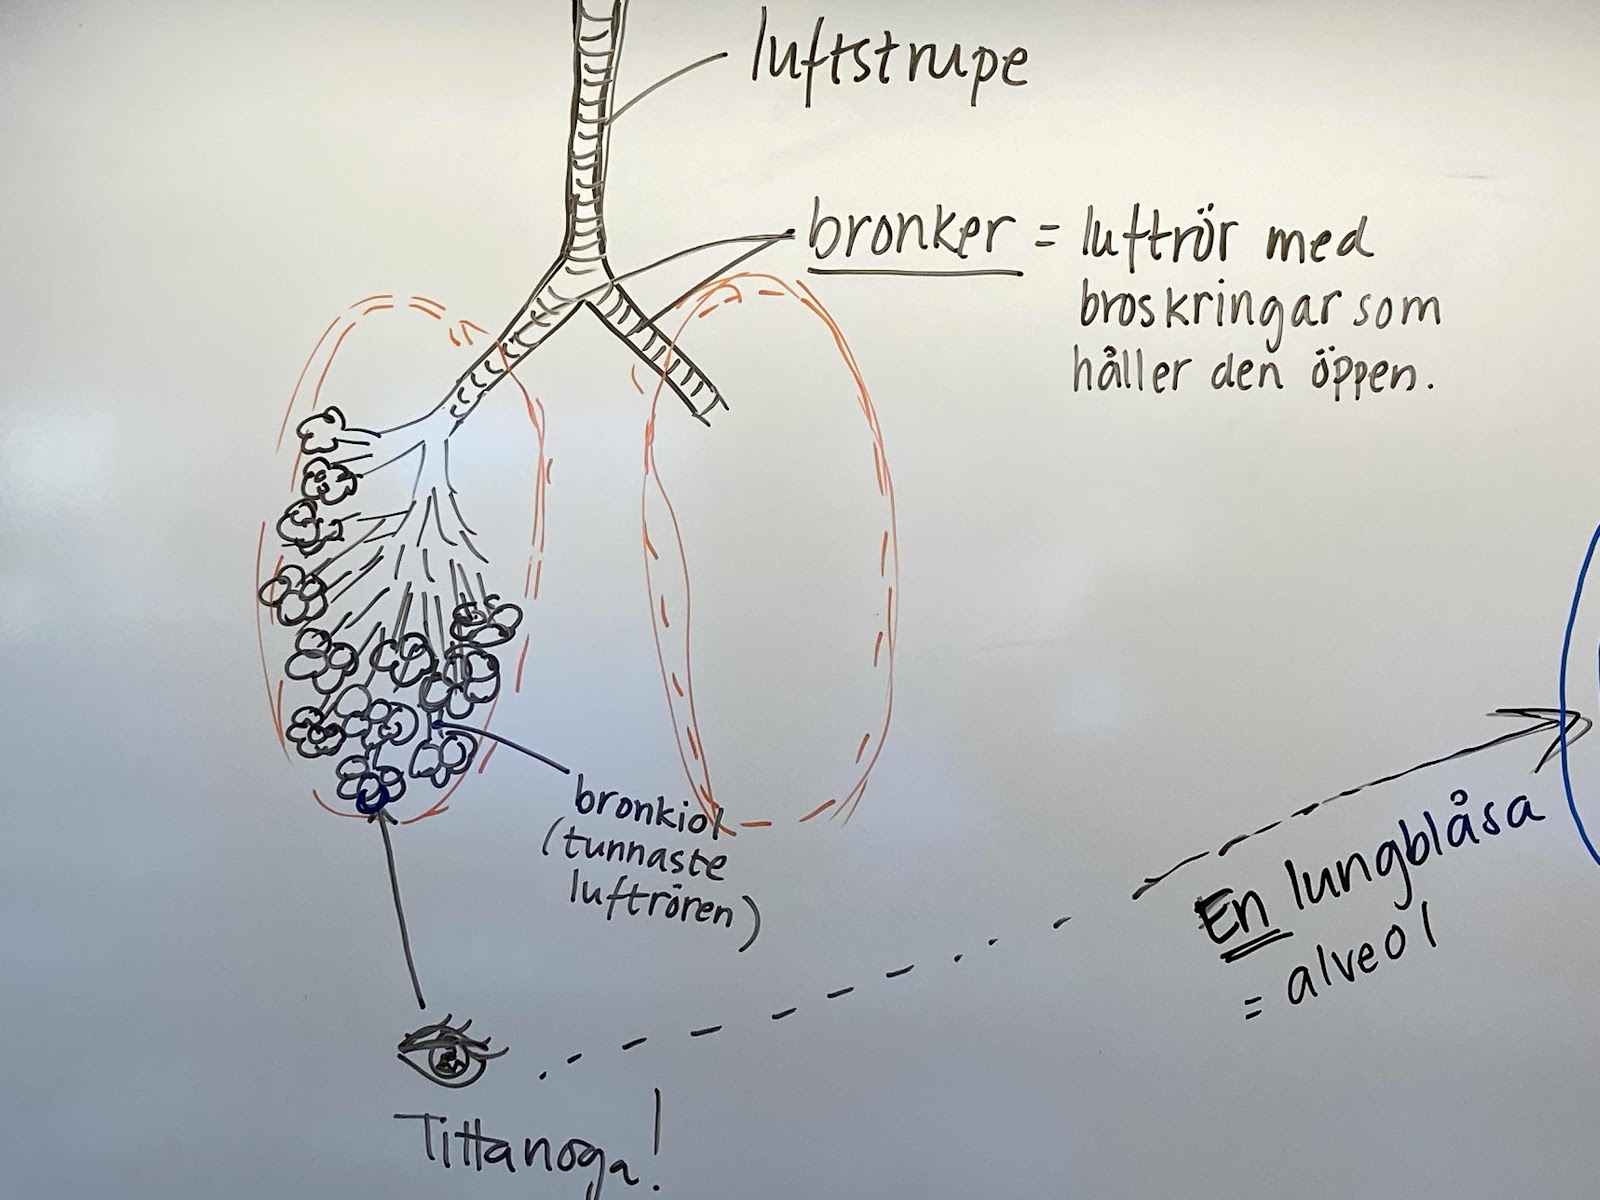 luftstrupe
bronker = luftrör med
broskringar som
håller den öppen.
bronkiol
(tunnaste
luftrören)
En lungblåsa
= alveol
Titta noga!